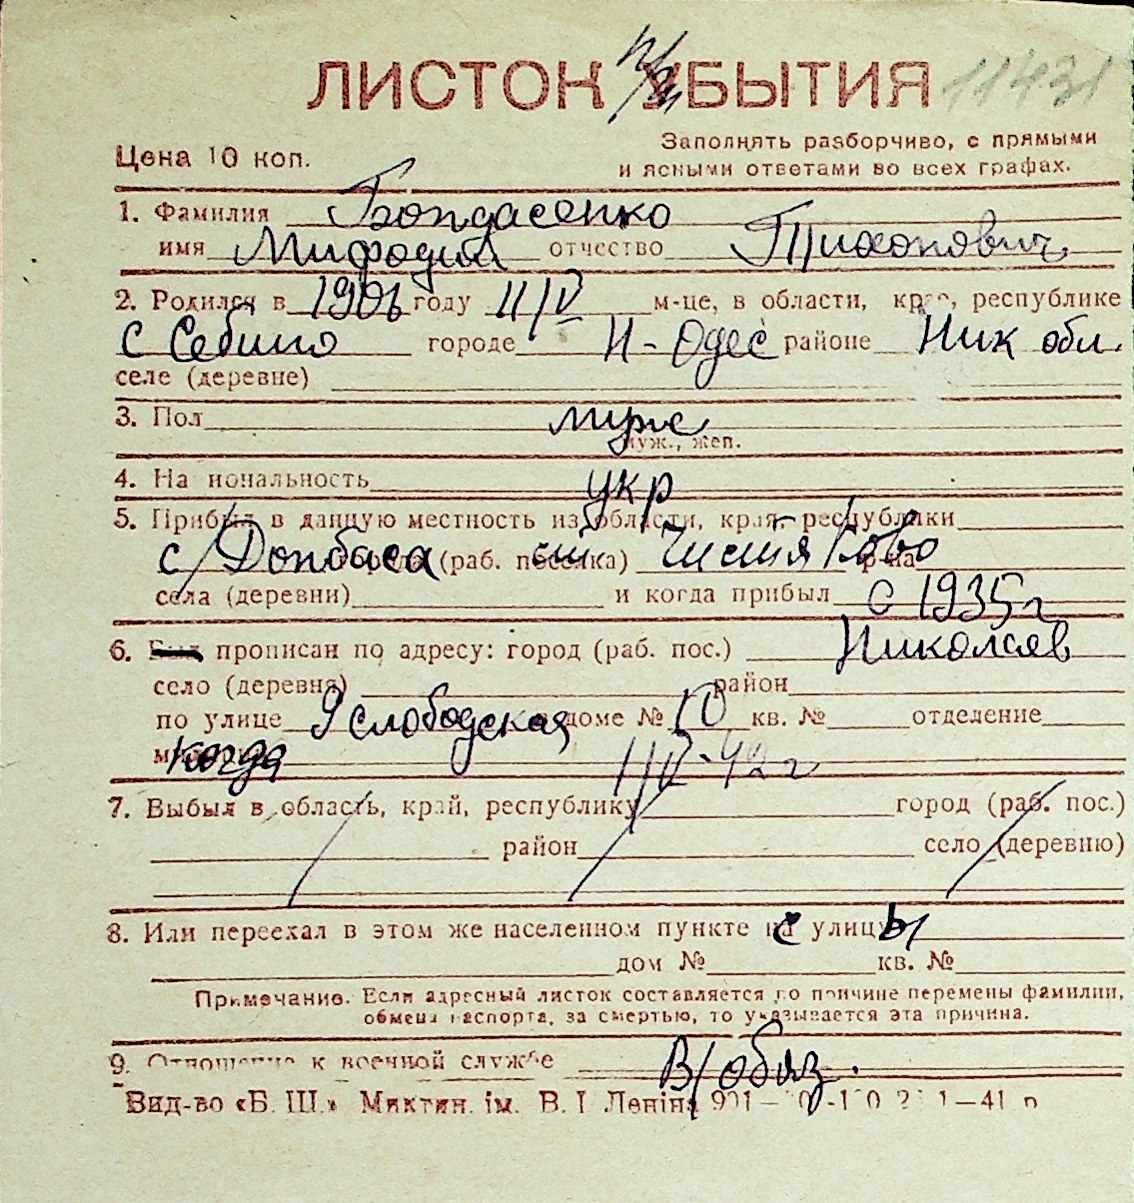 ЛИСТОК УБЫТИЯ 11431
Цена 10 коп. Заполнять разборчиво, с прямыми
и ясными ответами во всех графах.
1. Фамилия Бондасенко
имя Мифодий отчество Тихонович
2. Родился в 1906 году 11/V м-це, в области, крае, республике
с Себино городе Н-Одес районе Ник обл.
селе (деревне)
3. Пол муж
муж., жен.
4. Национальность укр
5. Прибыл в данную местность из области, края, республики
с Донбаса города (раб. поселка) ст Чистяково р-на
села (деревни) и когда прибыл с 1935 г
6. прописан по адресу: город (раб. пос.) Николаев
село (деревня) район
по улице 9 слободская доме № 10 кв. № отделение
когда 1/IV-42 г
7. Выбыл в область, край, республику город (раб. пос.)
район село (деревню)
8. Или переехал в этом же населенном пункте с улицы
дом № кв. №
Примечание. Если адресный листок составляется по причине перемены фамилии,
обмена паспорта, за смертью, то указывается эта причина.
9. Отношение к военной службе В/обяз.
Вид-во «Б. Ш.» Микτин. ім. В. І Леніна